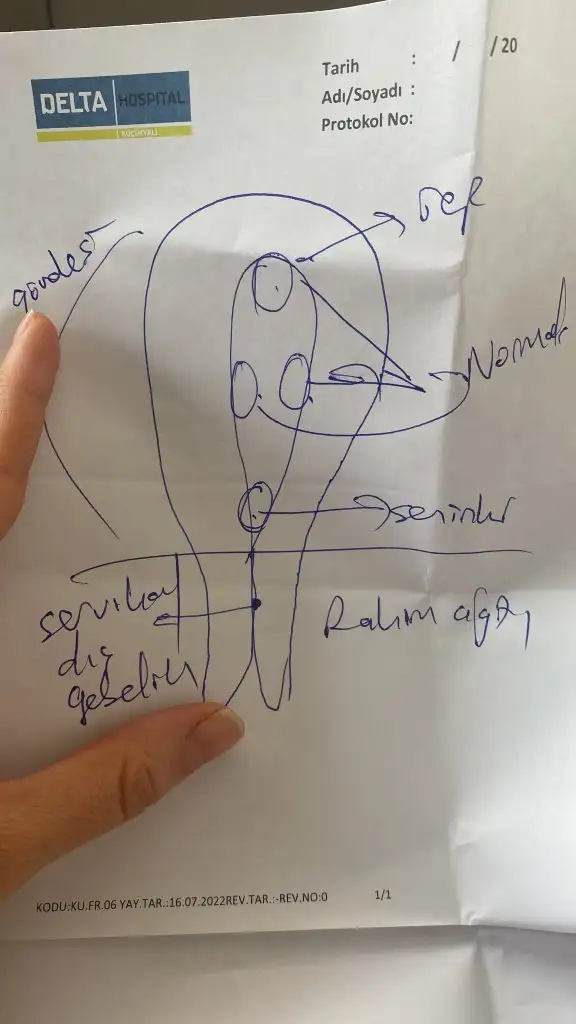 DELTA HOSPITAL
KÜÇÜKYALI
Tarih : / / 20
Adı/Soyadı :
Protokol No:
gövdesi
Normal
servikal
dış
gebelik
Rahim ağzı
KODU:KU.FR.06 YAY.TAR.:16.07.2022REV.TAR.:-REV.NO:0 1/1